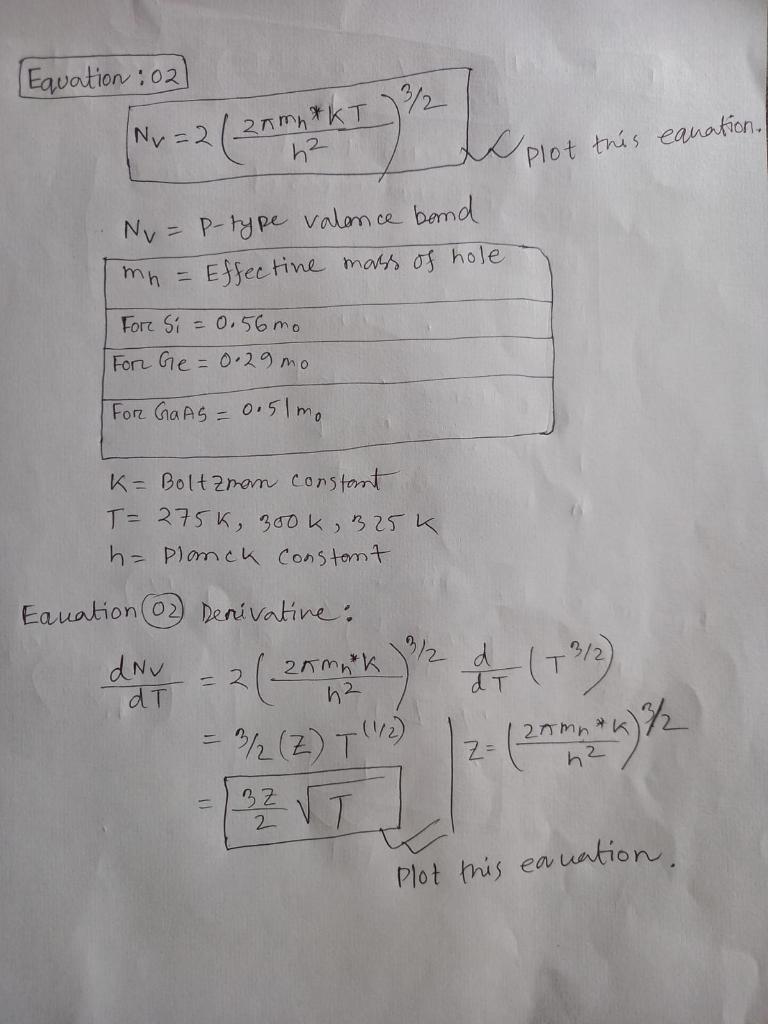 Equation : 02
Nv = 2 ( 2πmh*KT / h² )^3/2
Plot this equation.
Nv = P-type valance band
mh = Effective mass of hole
For Si = 0.56 mo
For Ge = 0.29 mo
For GaAs = 0.51 mo
K = Boltzman constant
T = 275 K, 300 K, 325 K
h = Planck Constant
Equation 02 Derivative :
dNv/dT = 2 ( 2πmh*K / h² )^3/2 d/dT (T^3/2)
= 3/2 (Z) T^(1/2) | Z = ( 2πmh*K / h² )^3/2
= 3Z/2 √T
Plot this equation.